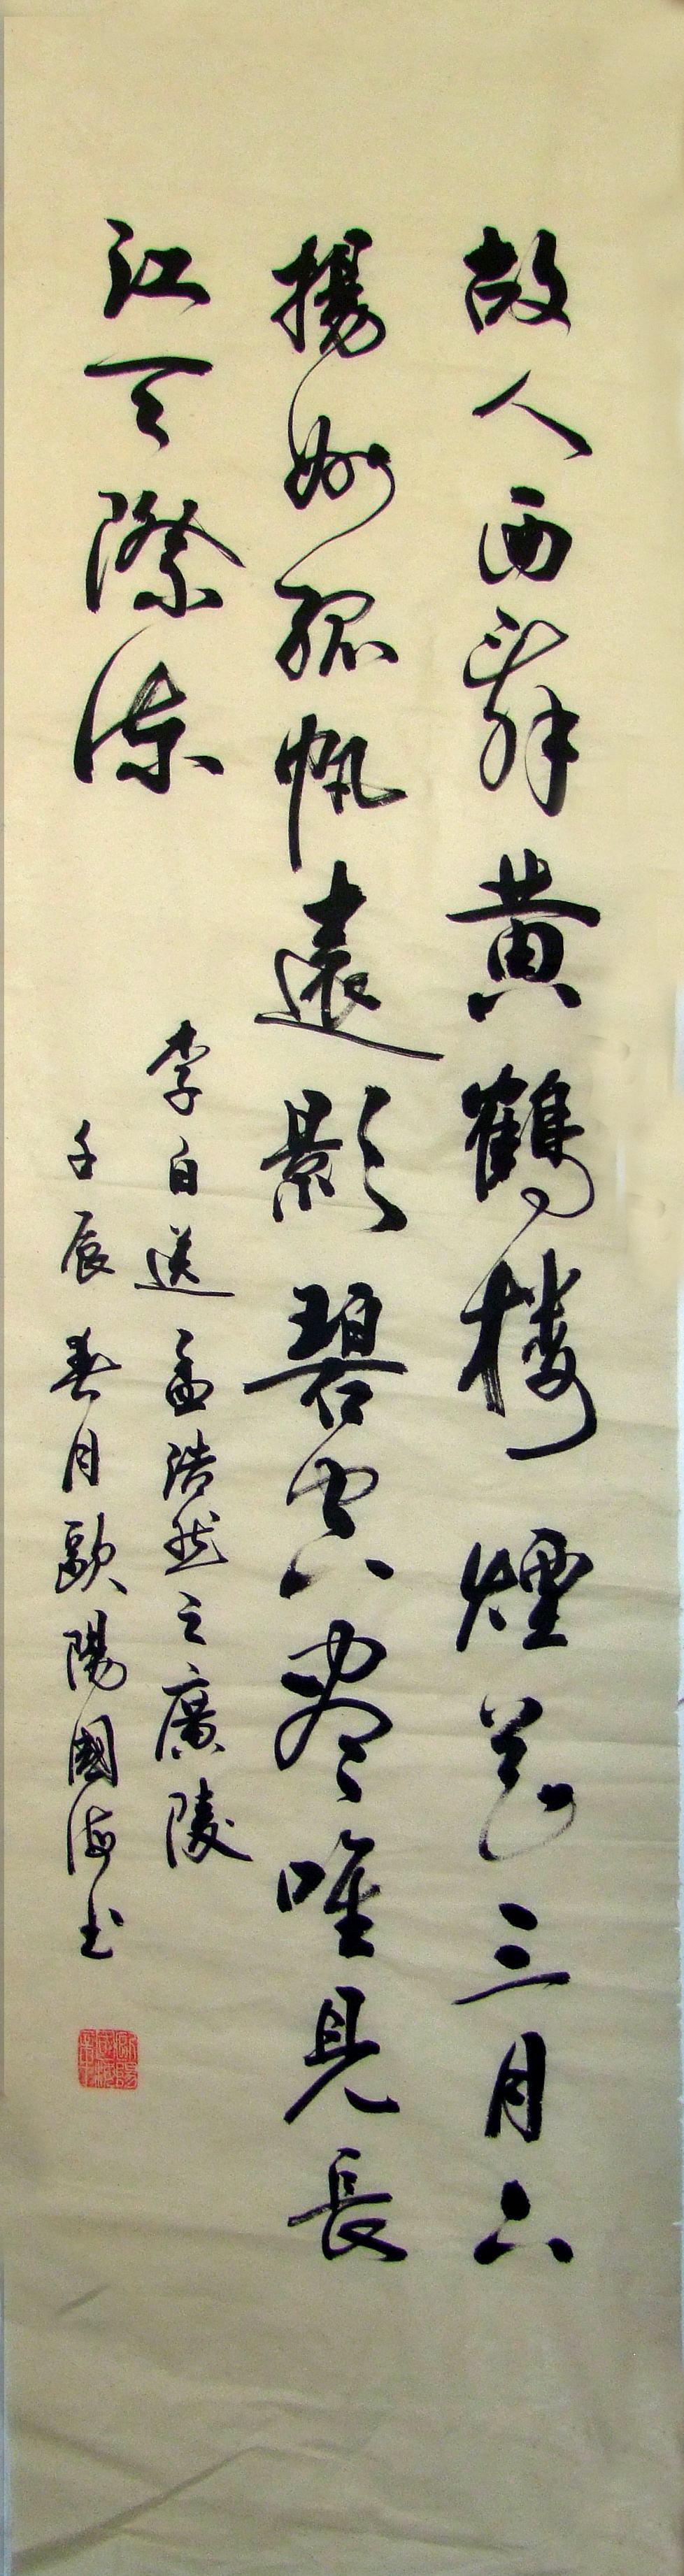 故人西辞黄鶴楼煙花三月下
揚州孤帆遠影碧空尽唯見長
江天際流
李白送孟浩然之廣陵
壬辰春月歐陽國海书